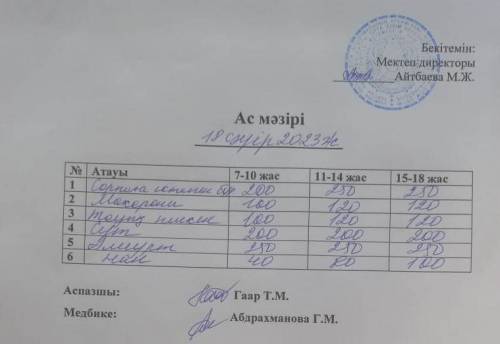 Бекітемін:
Мектеп директоры
Айтбаева М.Ж.
Ас мәзірі
18 сәуір 2023ж
№ Атауы 7-10 жас 11-14 жас 15-18 жас
1 200 250 250
2 Макарони 100 120 120
3 100 120 120
4 Сүт 200 200 200
5 250 250 250
6 нан 40 80 100
Аспазшы: Гаар Т.М.
Медбике: Абдрахманова Г.М.